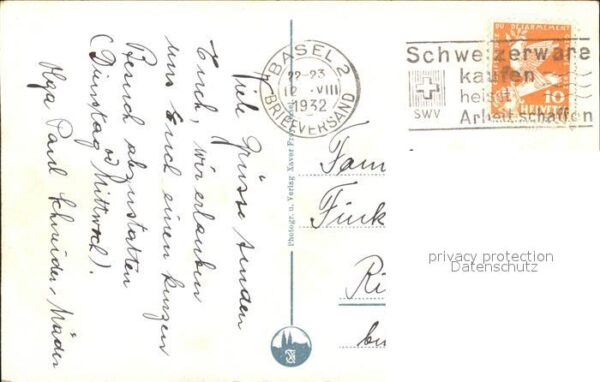 Viele Grüsse senden
Euch, wir erlauben
uns Euch einen kurzen
Besuch abzustatten
(Dienstag od Mittwoch).
Olga Paul Schneider-Mäder
Photogr. u. Verlag Xaver Frey, Basel
BASEL 2
22-23
12. VIII
1932
BRIEFVERSAND
Schweizerware
kaufen
heisst
Arbeit schaffen
SWV
DU DÉSARMEMENT
10
HELVETIA
Fam
Fink
Ri
be
privacy protection
Datenschutz